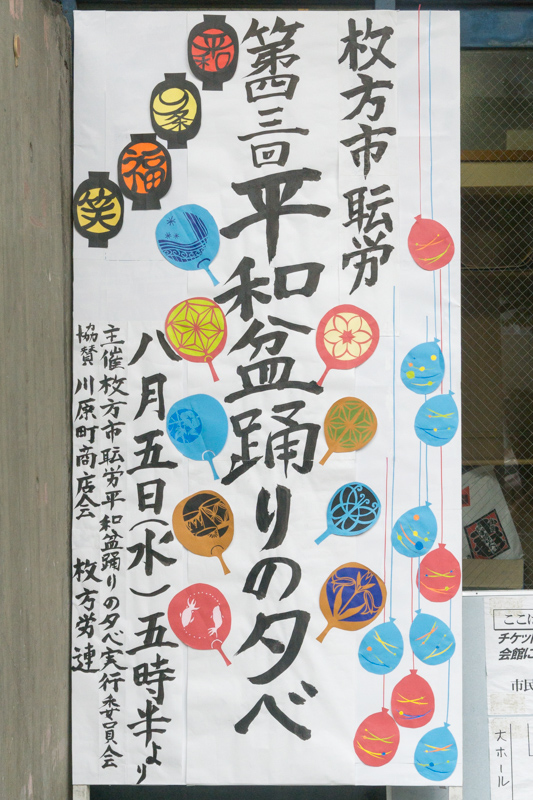 枚方市職労
第四三回
平和盆踊りの夕べ
八月五日(水)五時半より
主催 枚方市職労平和盆踊りの夕べ実行委員会
協賛 川原町商店会 枚方労連
平和
9条
福
笑
ここは
チケッ
会館に
市民
大ホール